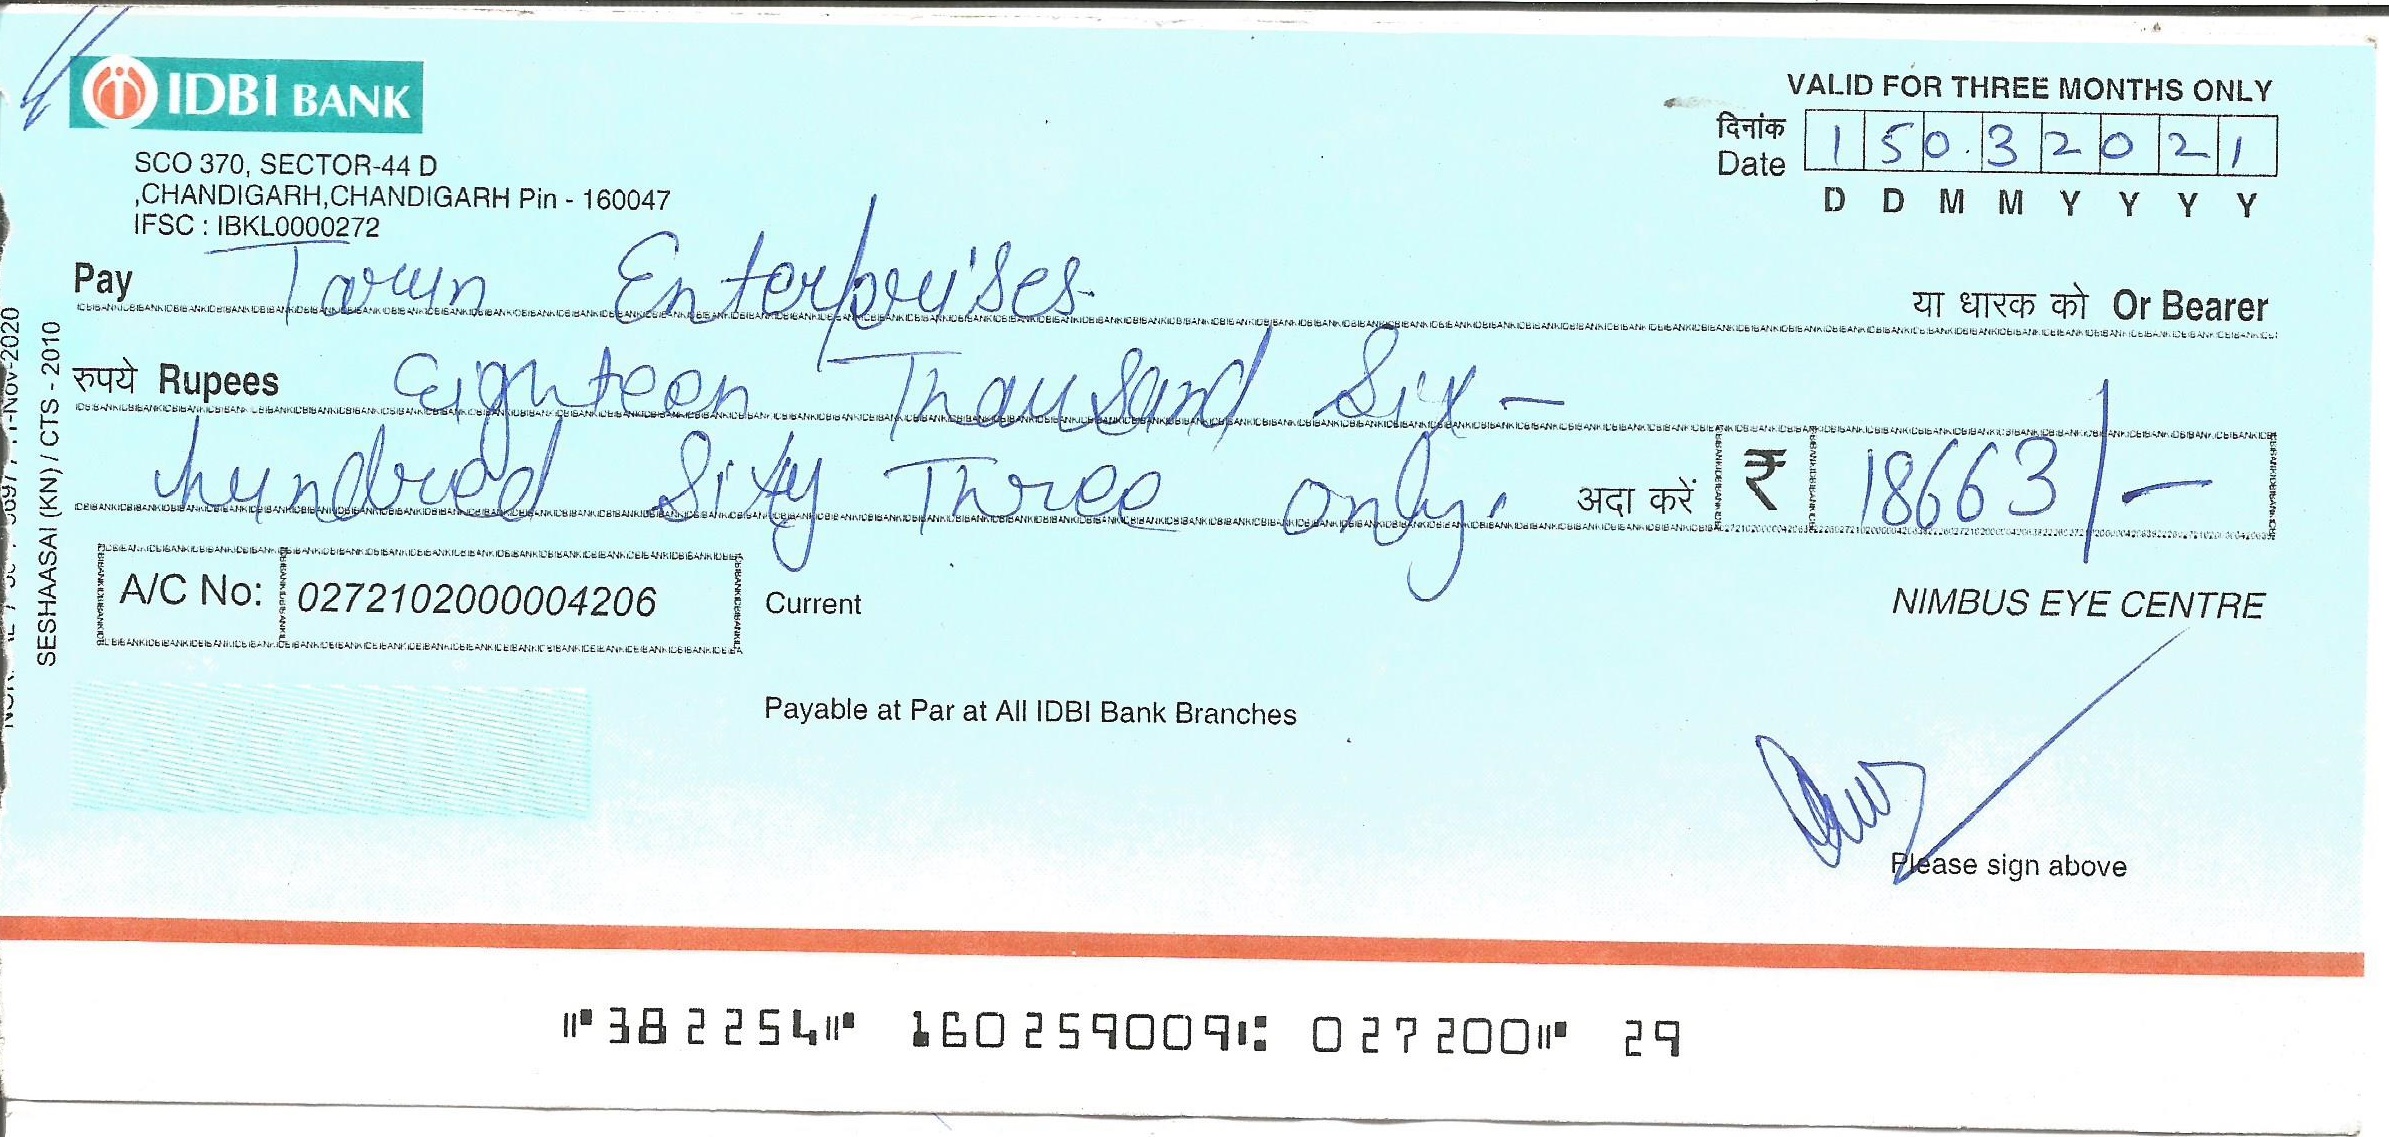 IDBI BANK
SCO 370, SECTOR-44 D
,CHANDIGARH,CHANDIGARH Pin - 160047
IFSC : IBKL0000272
VALID FOR THREE MONTHS ONLY
दिनांक
Date 1 5 0. 3 2 0 2 1
D D M M Y Y Y Y
Pay Tarun Enterprises. या धारक को Or Bearer
रुपये Rupees Eighteen Thousand Six -
hundred Sixty Three only. अदा करें ₹ 18663/-
A/C No: 0272102000004206 Current
NIMBUS EYE CENTRE
Payable at Par at All IDBI Bank Branches
VOID
Please sign above
SESHAASAI (KN) / CTS - 2010
⑈382254⑈ 160259009⑆ 027200⑈ 29